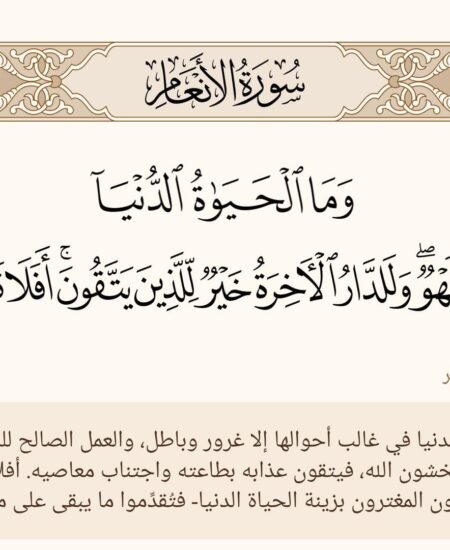 سُورَةُ الأَنْعَامِ
وَمَا ٱلْحَيَوٰةُ ٱلدُّنْيَآ
وَلَهْوٌۭ ۖ وَلَلدَّارُ ٱلْـَٔاخِرَةُ خَيْرٌۭ لِّلَّذِينَ يَتَّقُونَ ۚ أَفَلَا
دنيا في غالب أحوالها إلا غرور وباطل، والعمل الصالح
خشون الله، فيتقون عذابه بطاعته واجتناب معاصيه.
ون المغترون بزينة الحياة الدنيا- فتُقدِّموا ما يبقى على